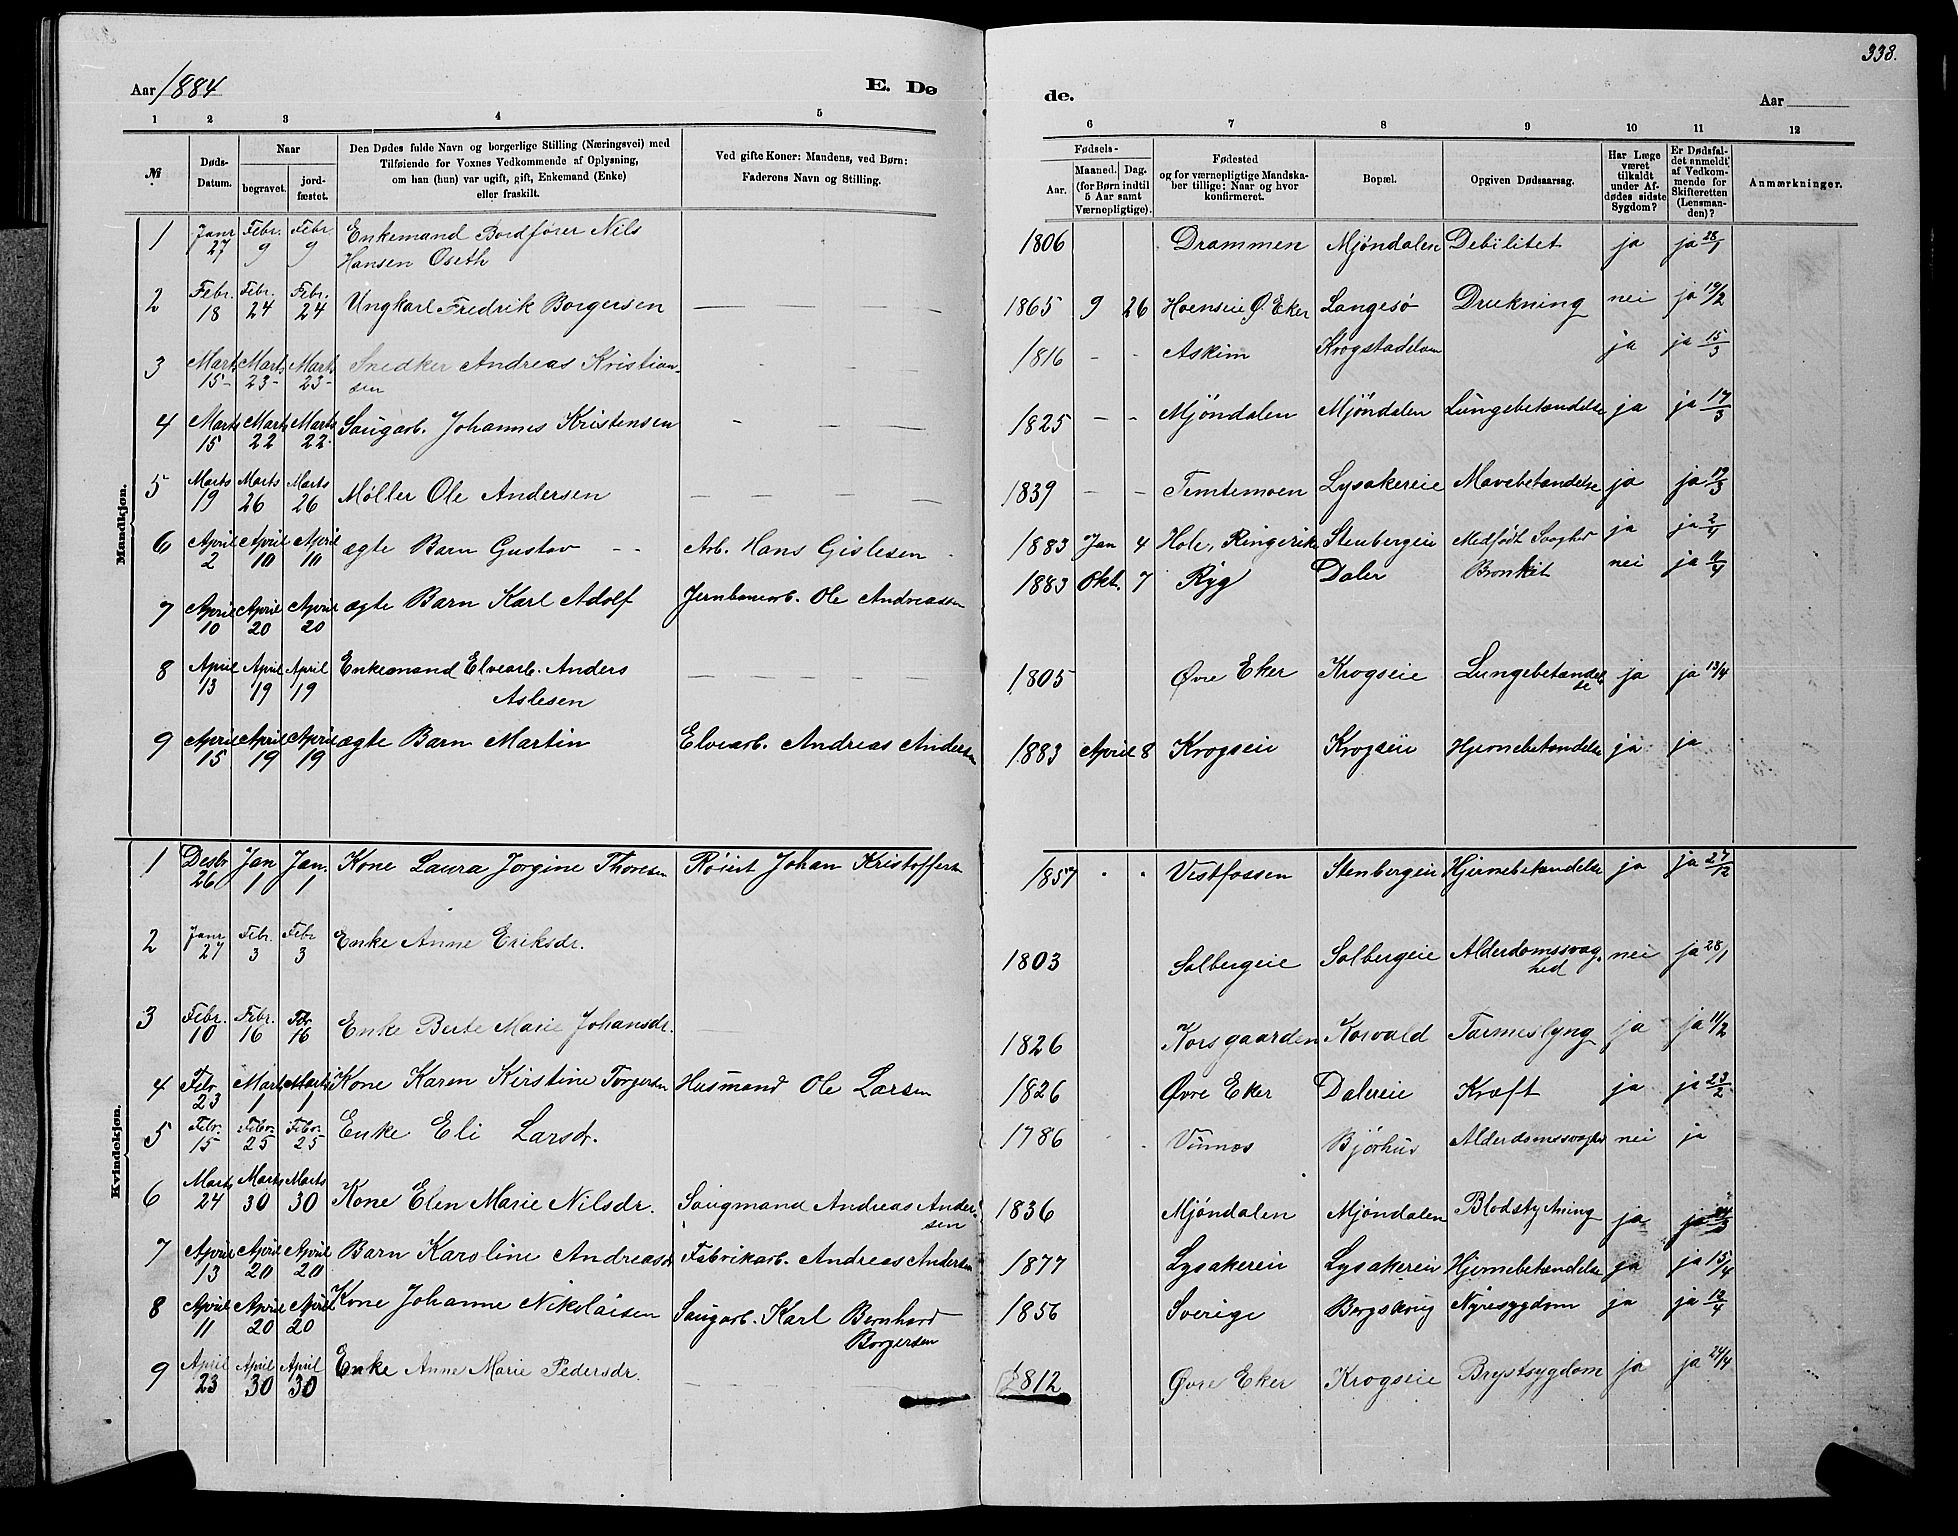 338.
Aar 1884
E. Dø
de.
Aar
1 2 3 4 5 6 7 8 9 10 11 12
№
Døds-Datum.
Naar
begravet.
jord-fæstet.
Den Dødes fulde Navn og borgerlige Stilling (Næringsvei) med
Tilføiende for Voxnes Vedkommende af Oplysning,
om han (hun) var ugift, gift, Enkemand (Enke)
eller fraskilt.
Ved gifte Koner: Mandens, ved Børn:
Faderens Navn og Stilling.
Fødsels-
Aar.
Maaned. Dag.
(for Børn indtil
5 Aar samt
Værnepligtige).
Fødested
og for værnepligtige Mandska-
ber tillige: Naar og hvor
konfirmeret.
Bopæl.
Opgiven Dødsaarsag.
Har Læge
været
tilkaldt
under Af-
dødes sidste
Sygdom?
Er Dødsfal-
det anmeldt
af Vedkom-
mende for
Skifteretten
(Lensman-
den)?
Anmærkninger.
Mandkjøn.
1 Janr 27 Febr. 9 Febr. 9 Enkemand Bordfører Nils
Hansen Øseth 1806 Drammen Mjøndalen Debilitet ja ja 28/1
2 Febr. 18 Febr. 24 Febr. 24 Ungkarl Fredrik Borgersen — — — 1865 9 26 Hoenseie Ø. Eker Langesø Drukning nei ja 19/2
3 Marts 15- Marts 23- Marts 23- Snedker Andreas Kristian-
sen 1816 - - Askim Krogstadelven ja ja 15/3
4 Marts 15 Marts 22 Marts 22 Saugarb. Johannes Kristensen - — — 1825 — - Mjöndalen Mjöndalen Lungebetændelse ja ja 17/3
5 Marts 19 Marts 26 Marts 26 Møller Ole Andersen — — — — 1839 — — Temtemoen Lysakereie Mavebetændelse ja ja 19/3
6 April 2 April 10 April 10 ægte Barn Gustav - - Arb. Hans Gislesen 1883 Jan 4 Hole, Ringerike Stenbergeie Medfödt Svaghed ja ja 2/4
7 April 10 April 20 April 20 ægte Barn Karl Adolf Jernbanearb. Ole Andreassen 1883 Okt. 7 Ryg Daler Bronkit nei ja 11/4
8 April 13 April 19 April 19 Enkemand Elvearb. Anders
Aslesen — — — — 1805 Øvre Eker Krogseie Lungebetændel-
se ja ja 13/4
9 April 15 April 19 April 19 ægte Barn Martin Elvearb. Andreas Andersen 1883 April 8 Krogseie Krogseie Hjernebetændelse ja ja
Kvindekjøn.
1 Desbr 26 Jan 1 Jan. 1 Kone Laura Jørgine Thoresen Johan Kristoffersen 1857 Vestfossen Stenbergeie Hjernebetændelse ja ja 27/12
2 Janr 27 Febr. 3 Febr 3 Enke Anne Eriksdr. 1803 Solbergeie Solbergeie Alderdomssvag-
hed nei ja 28/1
3 Febr. 10 Febr. 16 Febr 16 Enke Berte Marie Johansdr. 1826 Korsgaarden Korvald Tarmeslyng ja ja 11/2
4 Febr. 23 Marts 1 Marts 1 Kone Karen Kirstine Torgersen Husmand Ole Larsen 1826 Øvre Eker Dalereie Kræft ja ja 23/2
5 Febr. 15 Febr. 25 Febr. 25 Enke Eli Larsdr. 1786 Vinnes Bjørhus Alderdomssvaghed nei ja
6 Marts 24 Marts 30 Marts 30 Kone Elen Marie Nilsdr. Saugmand Andreas Ander-
sen 1836 Mjøndalen Mjøndalen Blodstyrtning ja ja 24/3
7 April 13 April 20 April 20 Barn Karoline Andreasdr Fabrikarb. Andreas Andersen 1877 Lysakereie Lysakereie Hjernebetændelse ja ja 15/4
8 April 11 April 20 April 20 Kone Johanne Nikolaisen Saugarb. Karl Bernhard
Borgersen 1856 Sverige Bergskoug Nyresygdom ja ja 12/4
9 April 23 April 30 April 30 Enke Anne Marie Pedersdr. 1812 Øvre Eker Krogseie Brystsygdom ja ja 24/4